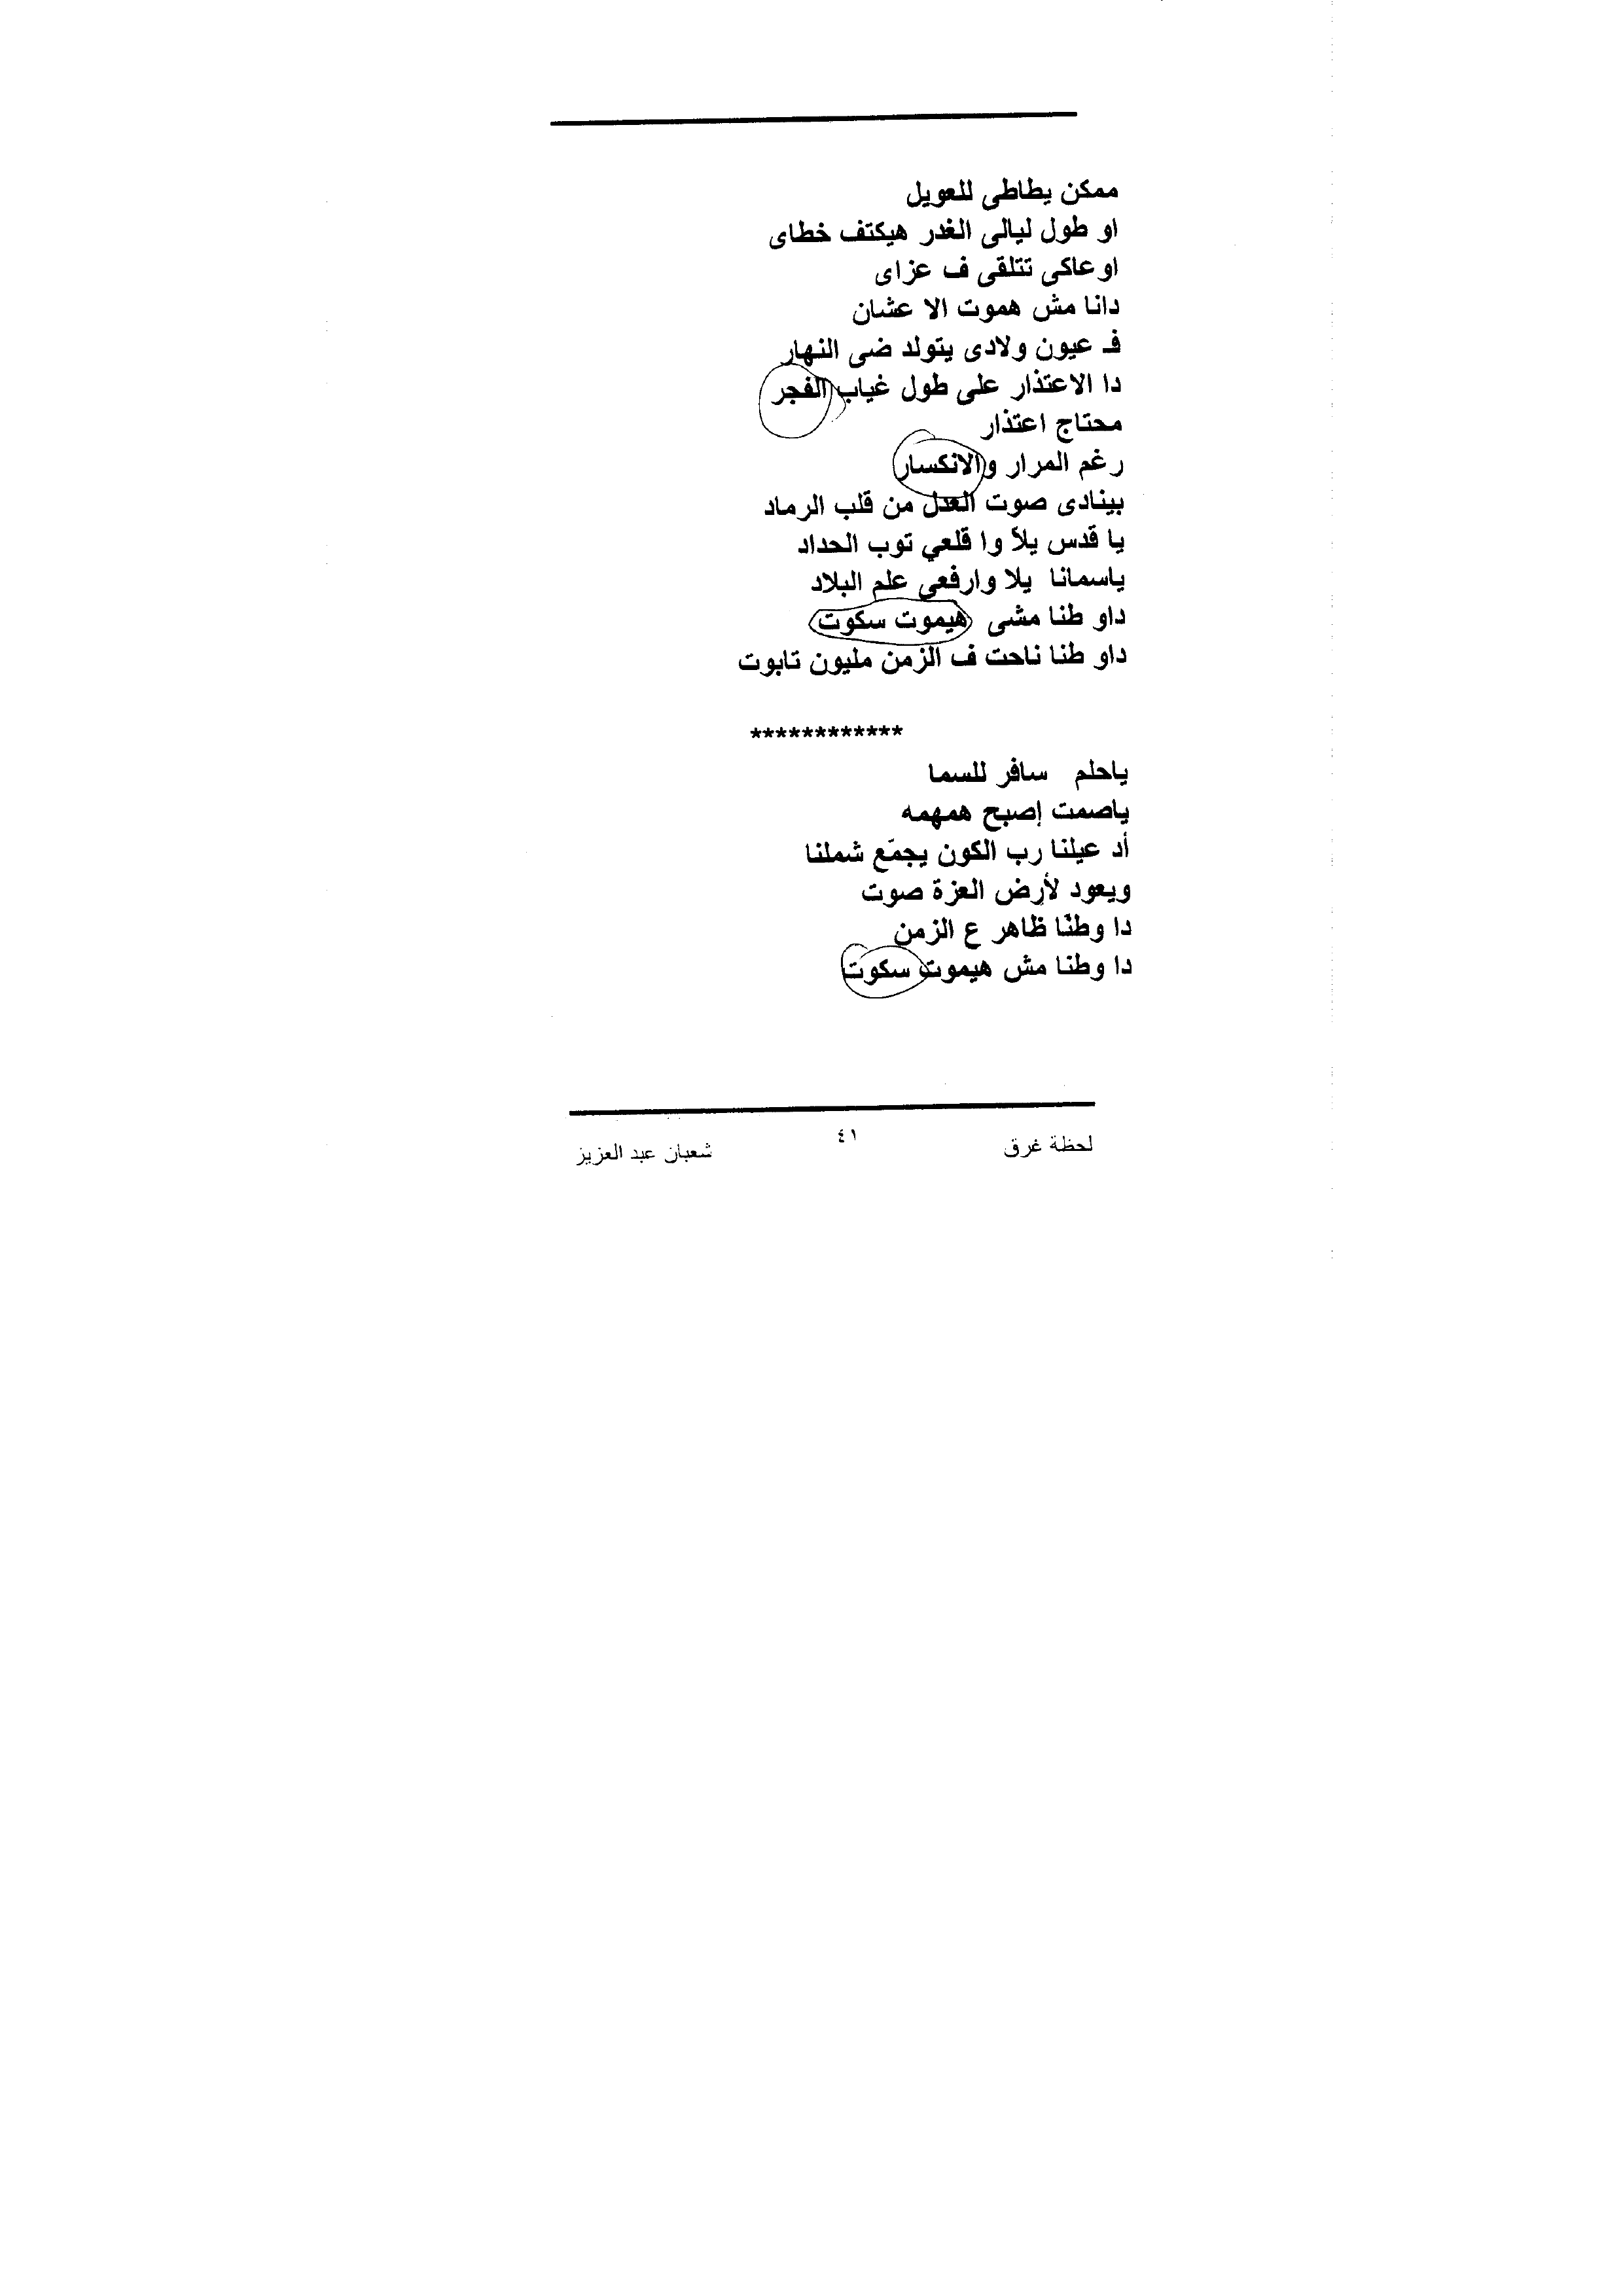 ممكن يطاطى للعويل
او طول ليالى الغدر هيكتف خطاى
اوعاكى تتلقى ف عزاى
دانا مش هموت الا عشان
فـ عيون ولادى يتولد ضى النهار
دا الاعتذار على طول غياب الفجر
محتاج اعتذار
رغم المرار والانكسار
بينادى صوت العدل من قلب الرماد
يا قدس يلاّ وا قلعي توب الحداد
ياسمانا يلا وارفعي علم البلاد
داو طنا مشى هيموت سكوت
داو طنا ناحت ف الزمن مليون تابوت
************
ياحلم سافر للسما
ياصمت إصبح همهمه
أد عيلنا رب الكون يجمّع شملنا
ويعود لأرض العزة صوت
دا وطنّا ظاهر ع الزمن
دا وطنا مش هيموت سكوت
لحظة غرق ٤١ شعبان عبد العزيز